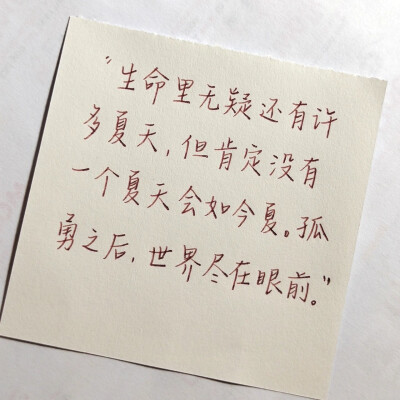 “生命里无疑还有许
多夏天,但肯定没有
一个夏天会如今夏。孤
勇之后,世界尽在眼前。”